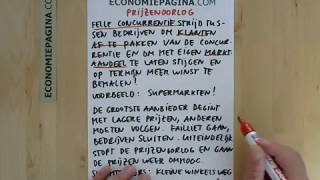 ECONOMIEPAGINA.COM
PRIJZENOORLOG
FELLE CONCURRENTIESTRIJD TUS-
SEN BEDRIJVEN OM KLANTEN
AF TE PAKKEN VAN DE CONCUR-
RENTIE EN OM MET EIGEN MARKT
AANDEEL TE LATEN STIJGEN EN
OP TERMIJN MEER WINST TE
BEHALEN!
VOORBEELD: SUPERMARKTEN!
DE GROOTSTE AANBIEDER BEGINT
MET LAGERE PRIJZEN, ANDEREN
MOETEN VOLGEN. FAILLIET GAAN,
BEDRIJVEN SLUITEN. UITEINDELIJK
STOPT DE PRIJZENOORLOG EN GAAN
DE PRIJZEN WEER OMHOOG.
KLEINE WINKELS WEG
ECONOMIEPAGINA.COM